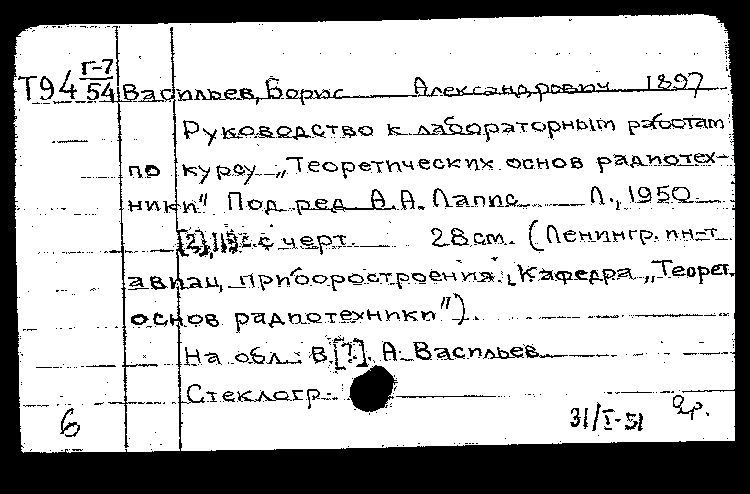 Т94 Г-7
54 Васильев, Борис Александрович 1897
Руководство к лабораторным работам
по курсу „Теоретических основ радиотех-
ники" Под ред А.А. Лапис Л., 1950
[2], 119 с. с черт. 28 см. (Ленингр. ин-т
авиац. приборостроения. Кафедра „Теорет.
основ радиотехники").
На обл.: В [?]. А. Васильев
Стеклогр.
6 31/I-51